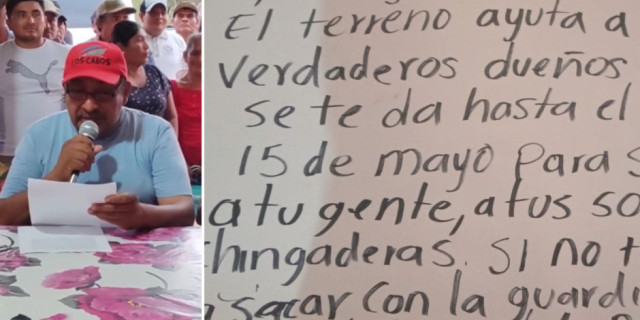 LOS CABOS
El terreno ayuta a
verdaderos dueños
se te da hasta el
15 de mayo para s
a tu gente, a tus so
hingaderas. SI no t
sacar con la guardi